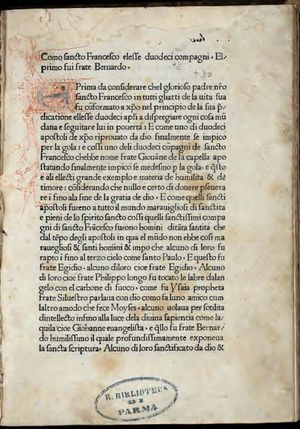 Como sancto Francesco elesse duodeci compagni. El
primo fui frate Bernardo.
Prima da considerare chel glorioso patre nr̄o
sancto Francesco in tutti gliatti de la uita sua
fu cōformato a xp̄o nel principio de la sua p̄
dicatione elesse duodeci apl̄i a dispregiare ogni cosa mū
dana e seguitare lui in pouerta: E come uno di duodeci
apostoli de xp̄o riprouato da dio finalmente se impico
per la gola: e cossi uno deli duodeci cōpagni de sancto
Francesco chebbe nome frate Giouāne de la capella apo
statando finalmente impico se medesimo p la gola: e q̄sto
e ali electi grande exempio e materia de humilita & de
timore: cōsiderando che nullo e certo di douere pseuera
re i fino ala fine de la gratia de dio. E come quelli sancti
apostoli fureno a tutto il mondo marauegliosi di sanctita
e pieni de lo spirito sancto cossi quelli sanctissimi compa
gni di sancto Frācesco furono homini ditāta santita che
dal tēpo degli apostoli in qua el mūdo non ebbe cossi ma
rauegliosi & santi homini & impo che alcuno di loro fu
rapto i fino al terzo cielo come santo Paulo. E questo fu
frate Egidio. alcuno diloro cioe frate Egidio. Alcuno
di loro cioe frate Philippo longo fu tocato le labre dalan
gelo con el carbone di fuoco. come fu Ysaia propheta
frate Siluestro parlaua con dio como fa luno amico cum
laltro amodo che fece Moyses. alcuno uolaua per scilita
dintellecto infino alla luce dela diuina sapientia come la
quila cioe Giohanne euangelista. e q̄llo fu frate Bernar
do humilissimo il quale profundissimamente exponeua
la sancta scriptura. Alcuno di loro sanctificato da dio &
R. BIBLIOTECA
DI
PARMA